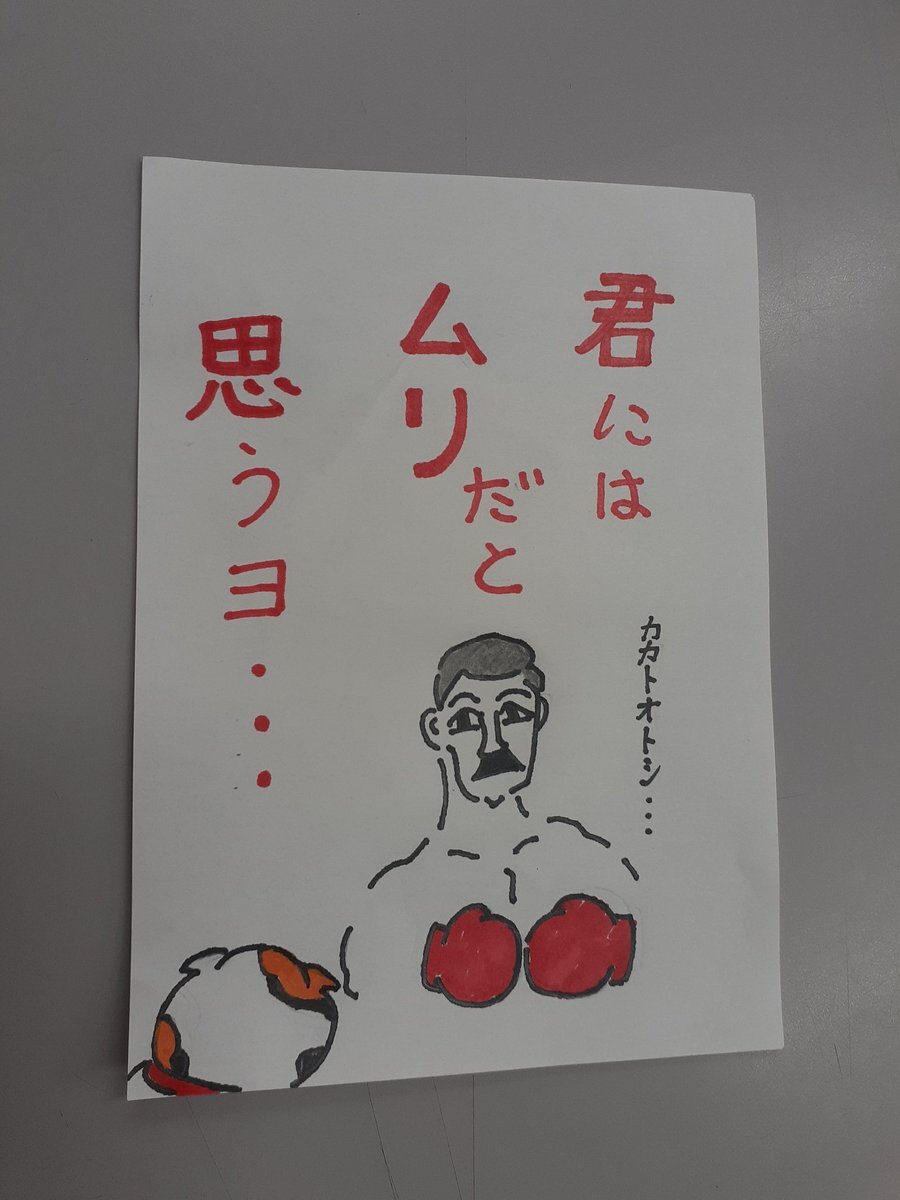 君には
ムリだと
思うヨ・・・
カカトオトシ・・・